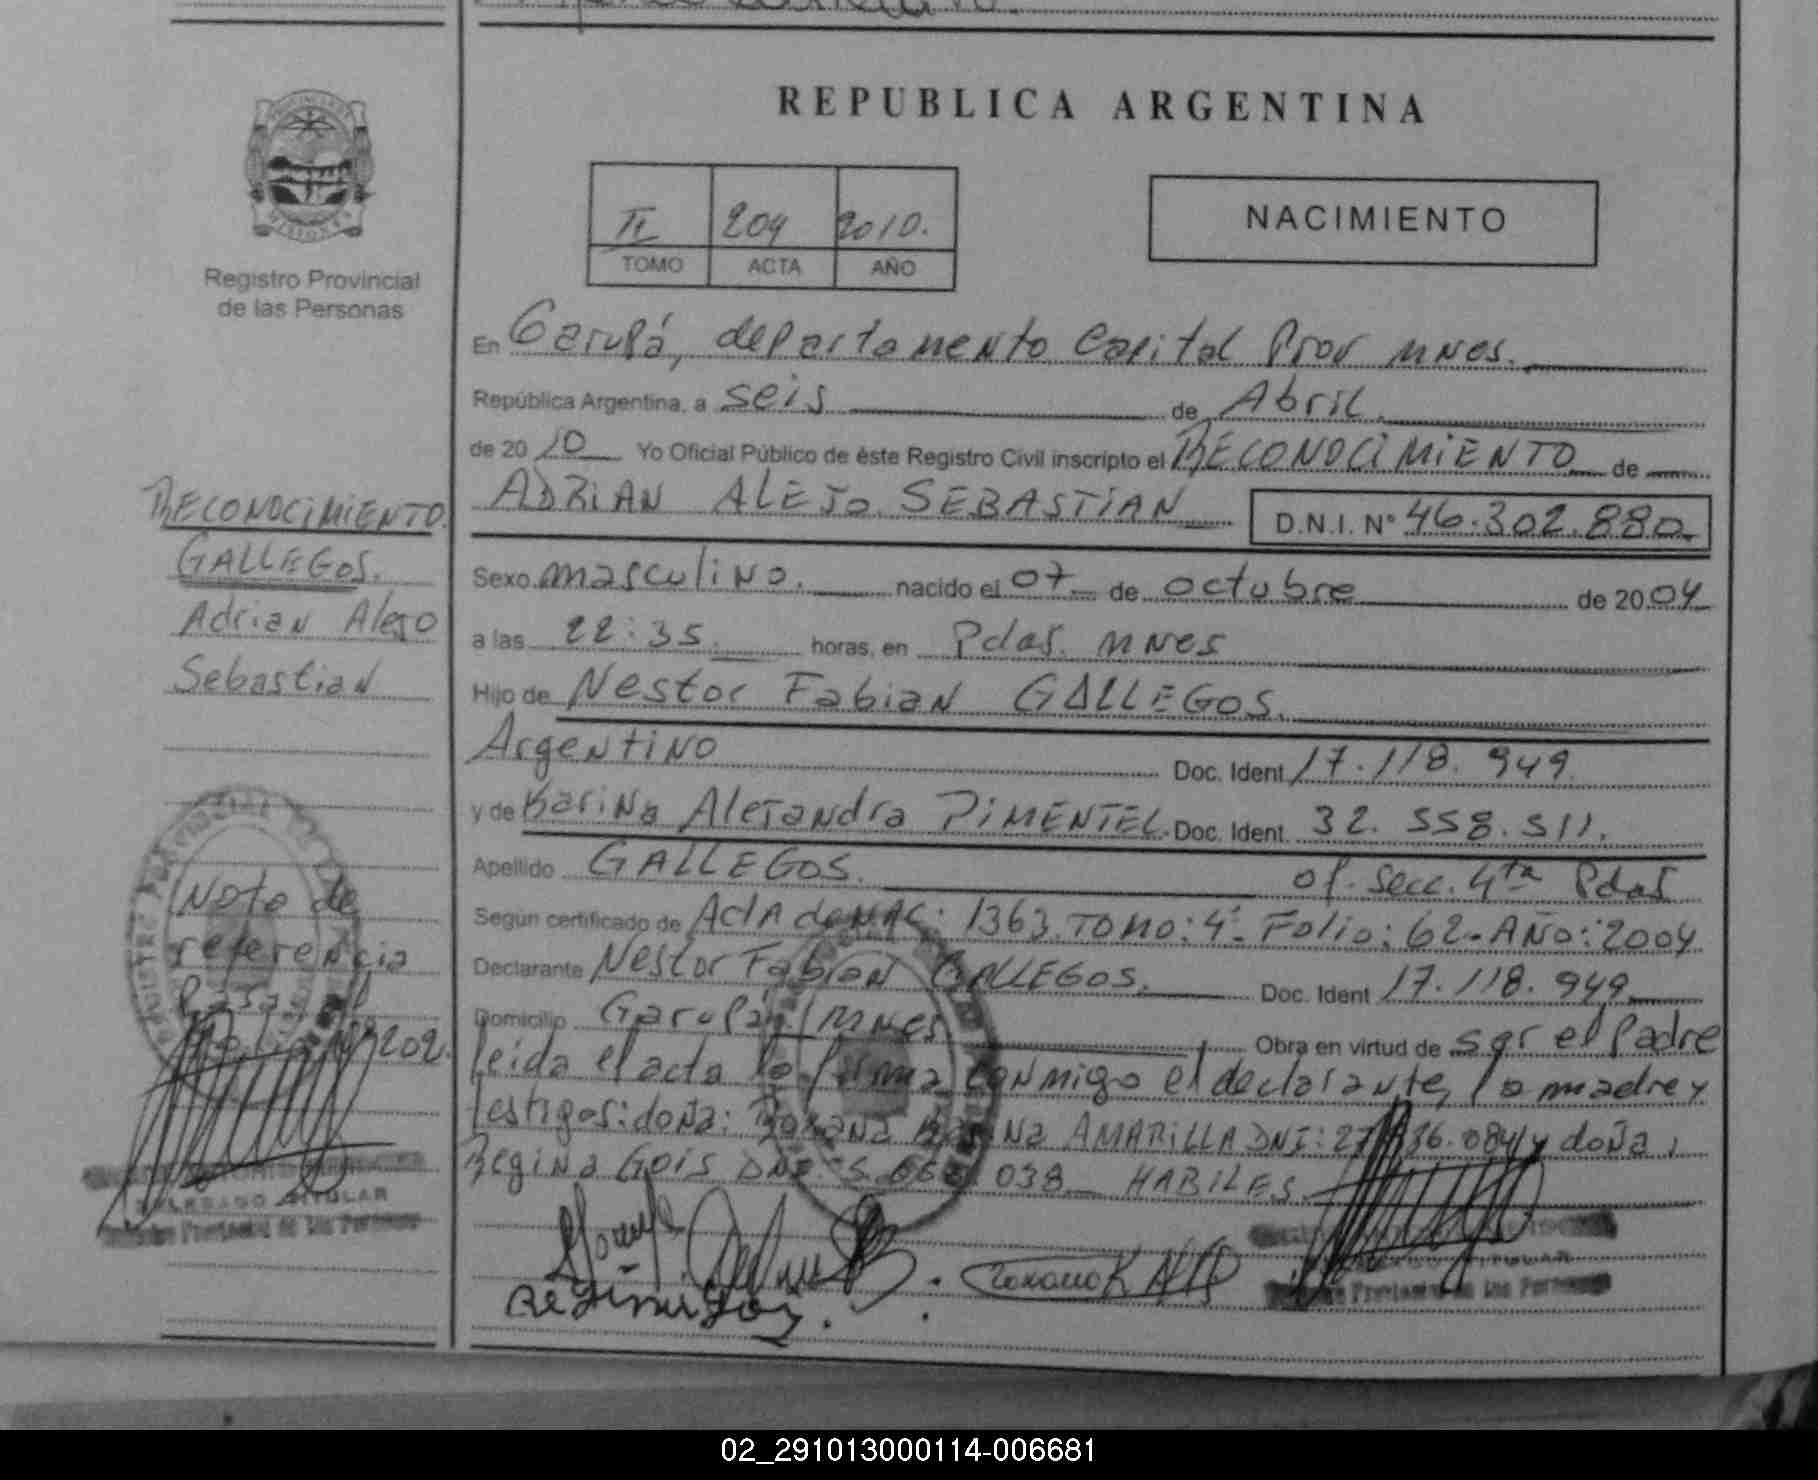 REPUBLICA ARGENTINA
II 204 2010.
TOMO ACTA AÑO
NACIMIENTO
Registro Provincial
de las Personas
En Garupá, departamento Capital Prov mnes.
República Argentina, a seis de Abril.
de 2010 Yo Oficial Público de éste Registro Civil inscripto el RECONOCIMIENTO de
ADRIAN ALEJO SEBASTIAN D.N.I. Nº 46.302.880.
Sexo masculino. nacido el 07 de octubre de 2004
a las 22:35. horas, en Pdas. mnes
Hijo de Nestor Fabian GALLEGOS.
Argentino Doc. Ident 17.118.949.
y de Karina Alejandra PIMENTEL. Doc. Ident. 32.558.511.
Apellido GALLEGOS. of. Secc. 4ta Pdas
Según certificado de Acta de NAC: 1363 TOMO: 4º Folio: 62- AÑO: 2004
Declarante Nestor Fabian GALLEGOS. Doc. Ident 17.118.949
Domicilio Garupá, mnes Obra en virtud de ser el Padre
leída el acta la firma conmigo el declarante, la madre y
testigos: doña: AMARILLA DNI: y doña,
Regina Gois DNI: 038 HABILES.
RECONOCIMIENTO.
GALLEGOS.
Adrian Alejo
Sebastian
Nota de
referencia
Pasa al
Folio Nº 202.
DELEGADO TITULAR
Provincial de las Personas
Provincial de las Personas
02_291013000114-006681